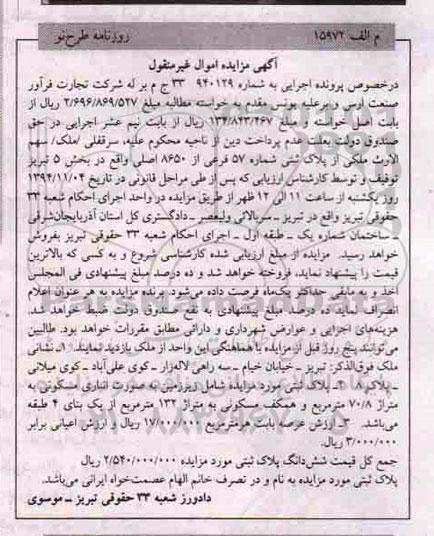 م الف ۱۵۹۷۲ روزنامه طرح‌نو
آگهی مزایده اموال غیرمنقول
درخصوص پرونده اجرایی به شماره ۹۴۰۱۲۹ ۳۳ ج م بر له شرکت تجارت فرآور
صنعت ارس و برعلیه یونس مقدم به خواسته مطالبه مبلغ ۲/۶۹۶/۸۶۹/۵۲۷ ریال از
بابت اصل خواسته و مبلغ ۱۳۴/۸۴۳/۴۶۷ ریال از بابت نیم عشر اجرایی در حق
صندوق دولت بعلت عدم پرداخت دین از ناحیه محکوم علیه، سرقفلی /ملک/ سهم
الارث ملکی از پلاک ثبتی شماره ۵۷ فرعی از ۸۶۵۰ اصلی واقع در بخش ۵ تبریز
توقیف و توسط کارشناس ارزیابی که پس از طی مراحل قانونی در تاریخ ۱۳۹۴/۱۱/۰۴
روز یکشنبه از ساعت ۱۱ الی ۱۲ ظهر از طریق مزایده در واحد اجرای احکام شعبه ۳۳
حقوقی تبریز واقع در تبریز ـ سربالائی ولیعصر ـ دادگستری کل استان آذربایجان‌شرقی
ـ ساختمان شماره یک ـ طبقه اول ـ اجرای احکام شعبه ۳۳ حقوقی تبریز بفروش
خواهد رسید. مزایده از مبلغ ارزیابی شده کارشناسی شروع و به کسی که بالاترین
قیمت را پیشنهاد نماید، فروخته خواهد شد و ده درصد مبلغ پیشنهادی فی المجلس
اخذ و به مابقی حداکثر یک‌ماه فرصت داده می‌شود. برنده مزایده به هر عنوان اعلام
انصراف نماید ده درصد مبلغ پیشنهادی به نفع صندوق دولت ضبط خواهد شد.
هزینه‌های اجرایی و عوارض شهرداری و دارائی مطابق مقررات خواهد بود. طالبین
می‌توانند پنج روز قبل از مزایده با هماهنگی این واحد از ملک بازدید نمایند. ۱ـ نشانی
ملک فوق‌الذکر: تبریز ـ خیابان خیام ـ سه راهی لاله‌زار ـ کوی علی‌آباد ـ کوی میلانی
ـ پلاک ۱۸ ۲ـ پلاک ثبتی مورد مزایده شامل زیرزمین به صورت انباری مسکونی به
متراژ ۷۰/۸ مترمربع و همکف مسکونی به متراژ ۱۳۲ مترمربع از یک بنای ۴ طبقه
می‌باشد. ۳ـ ارزش عرصه بابت هرمترمربع ۱۷/۰۰۰/۰۰۰ ریال و ارزش اعیانی برابر
۳/۰۰۰/۰۰۰ ریال.
جمع کل قیمت شش‌دانگ پلاک ثبتی مورد مزایده ۲/۵۴۰/۰۰۰/۰۰۰ ریال
پلاک ثبتی مورد مزایده به نام و در تصرف خانم الهام عصمت‌خواه ایرانی می‌باشد.
دادورز شعبه ۳۳ حقوقی تبریز ـ موسوی
ParsNamadData